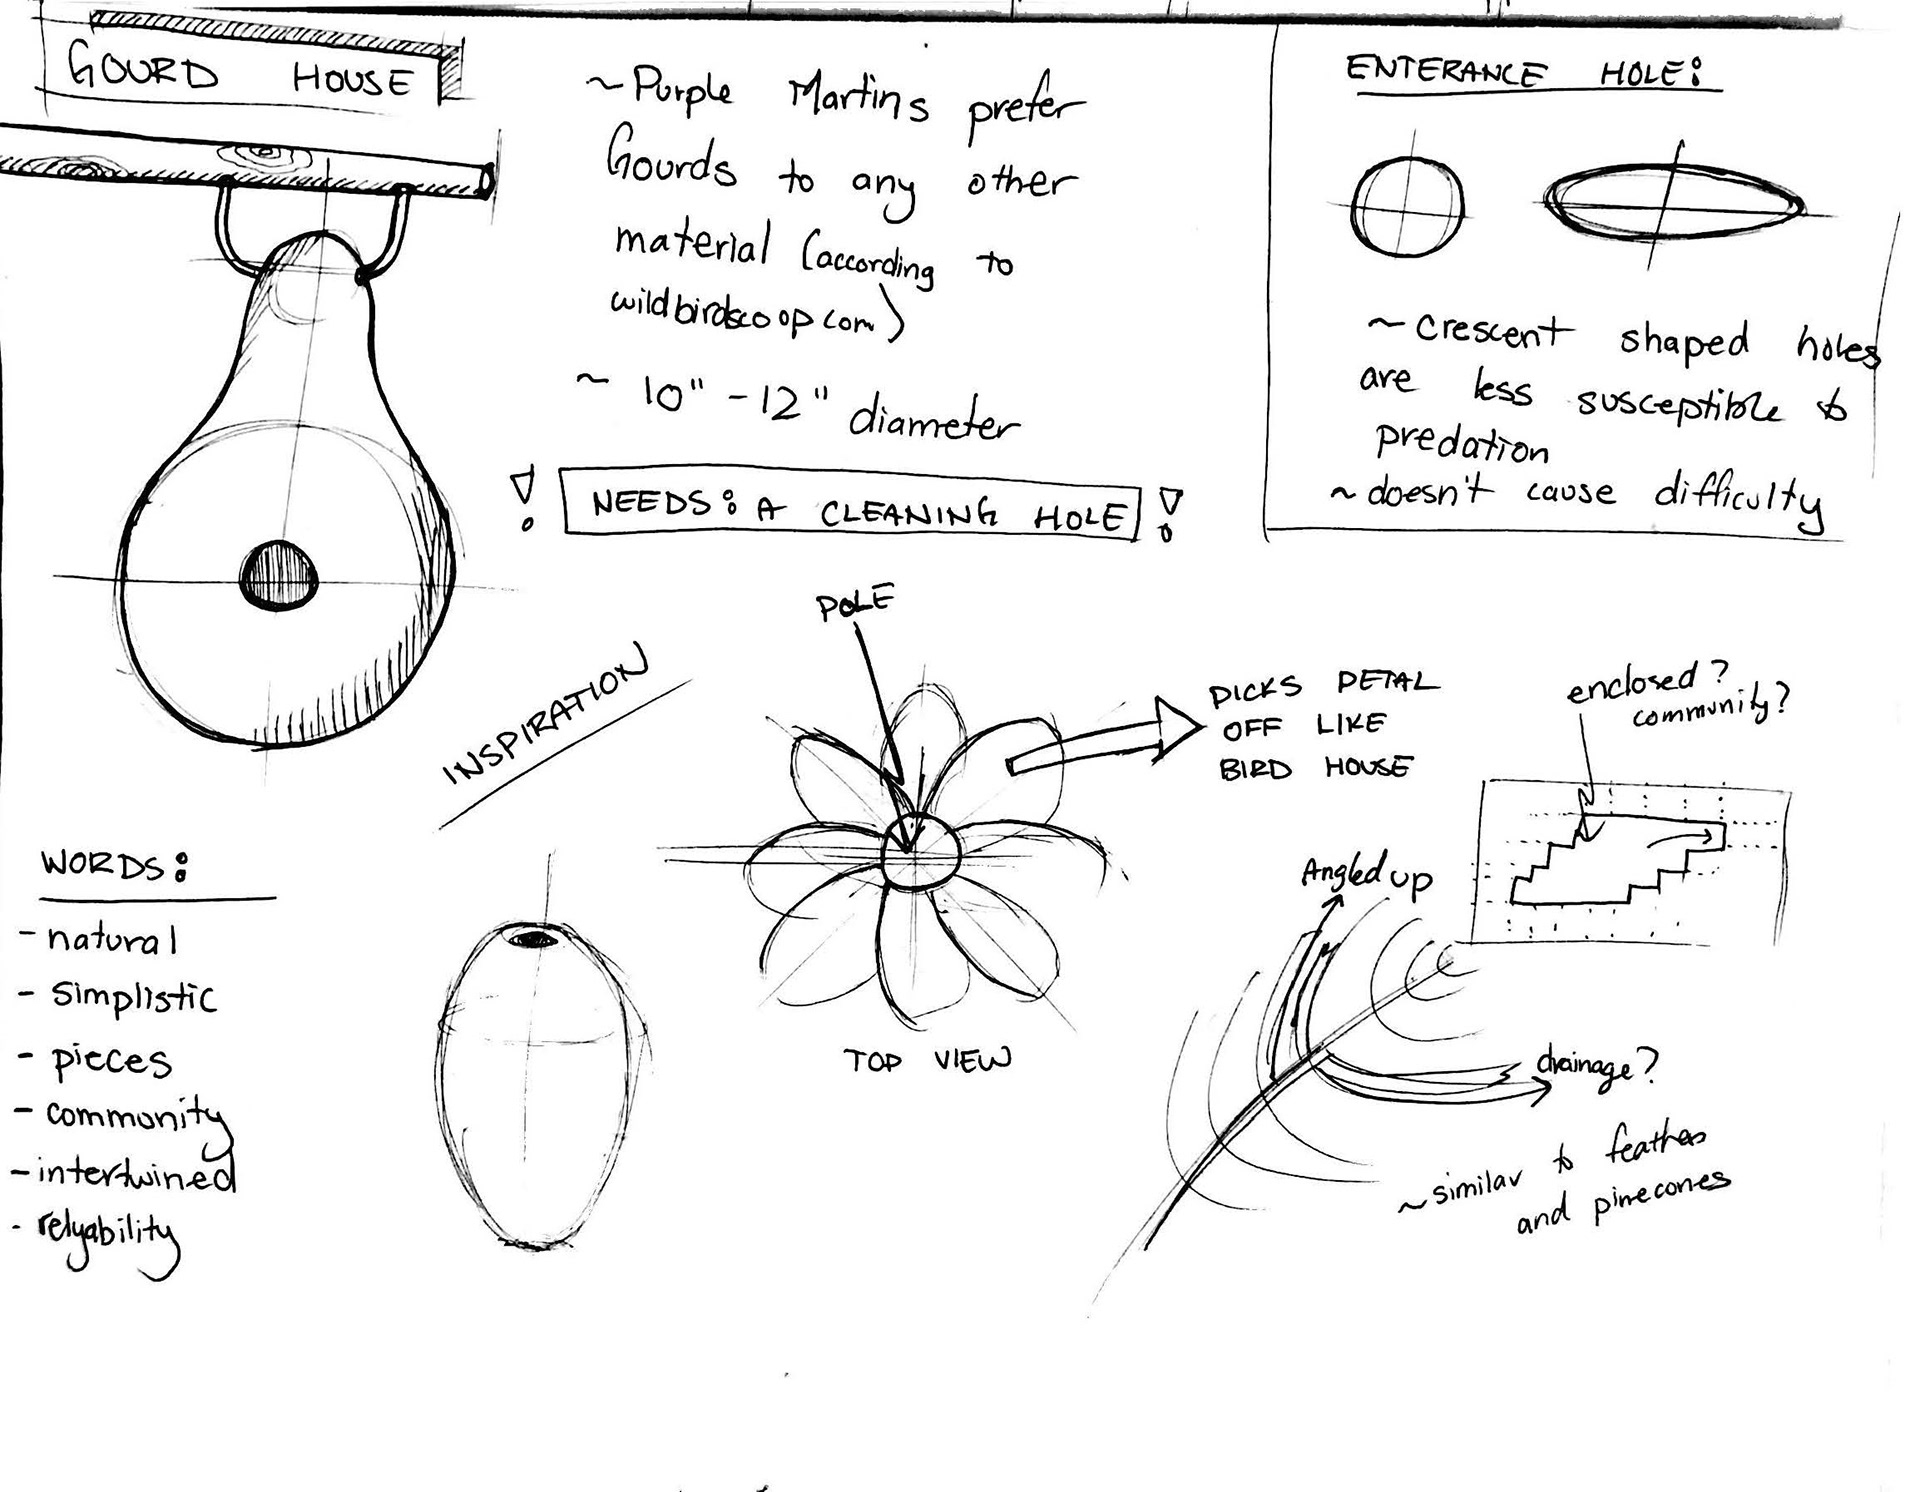 GOURD HOUSE
~Purple Martins prefer
Gourds to any other
material (according to
wildbirdscoop.com)
~ 10" - 12" diameter
! NEEDS: A CLEANING HOLE !
ENTERANCE HOLE:
~ crescent shaped holes
are less susceptible to
predation
~ doesn't cause difficulty
INSPIRATION
POLE
PICKS PETAL
OFF LIKE
BIRD HOUSE
TOP VIEW
enclosed?
community?
Angled up
drainage?
~similar to feathers
and pinecones
WORDS:
- natural
- simplistic
- pieces
- community
- intertwined
- relyability